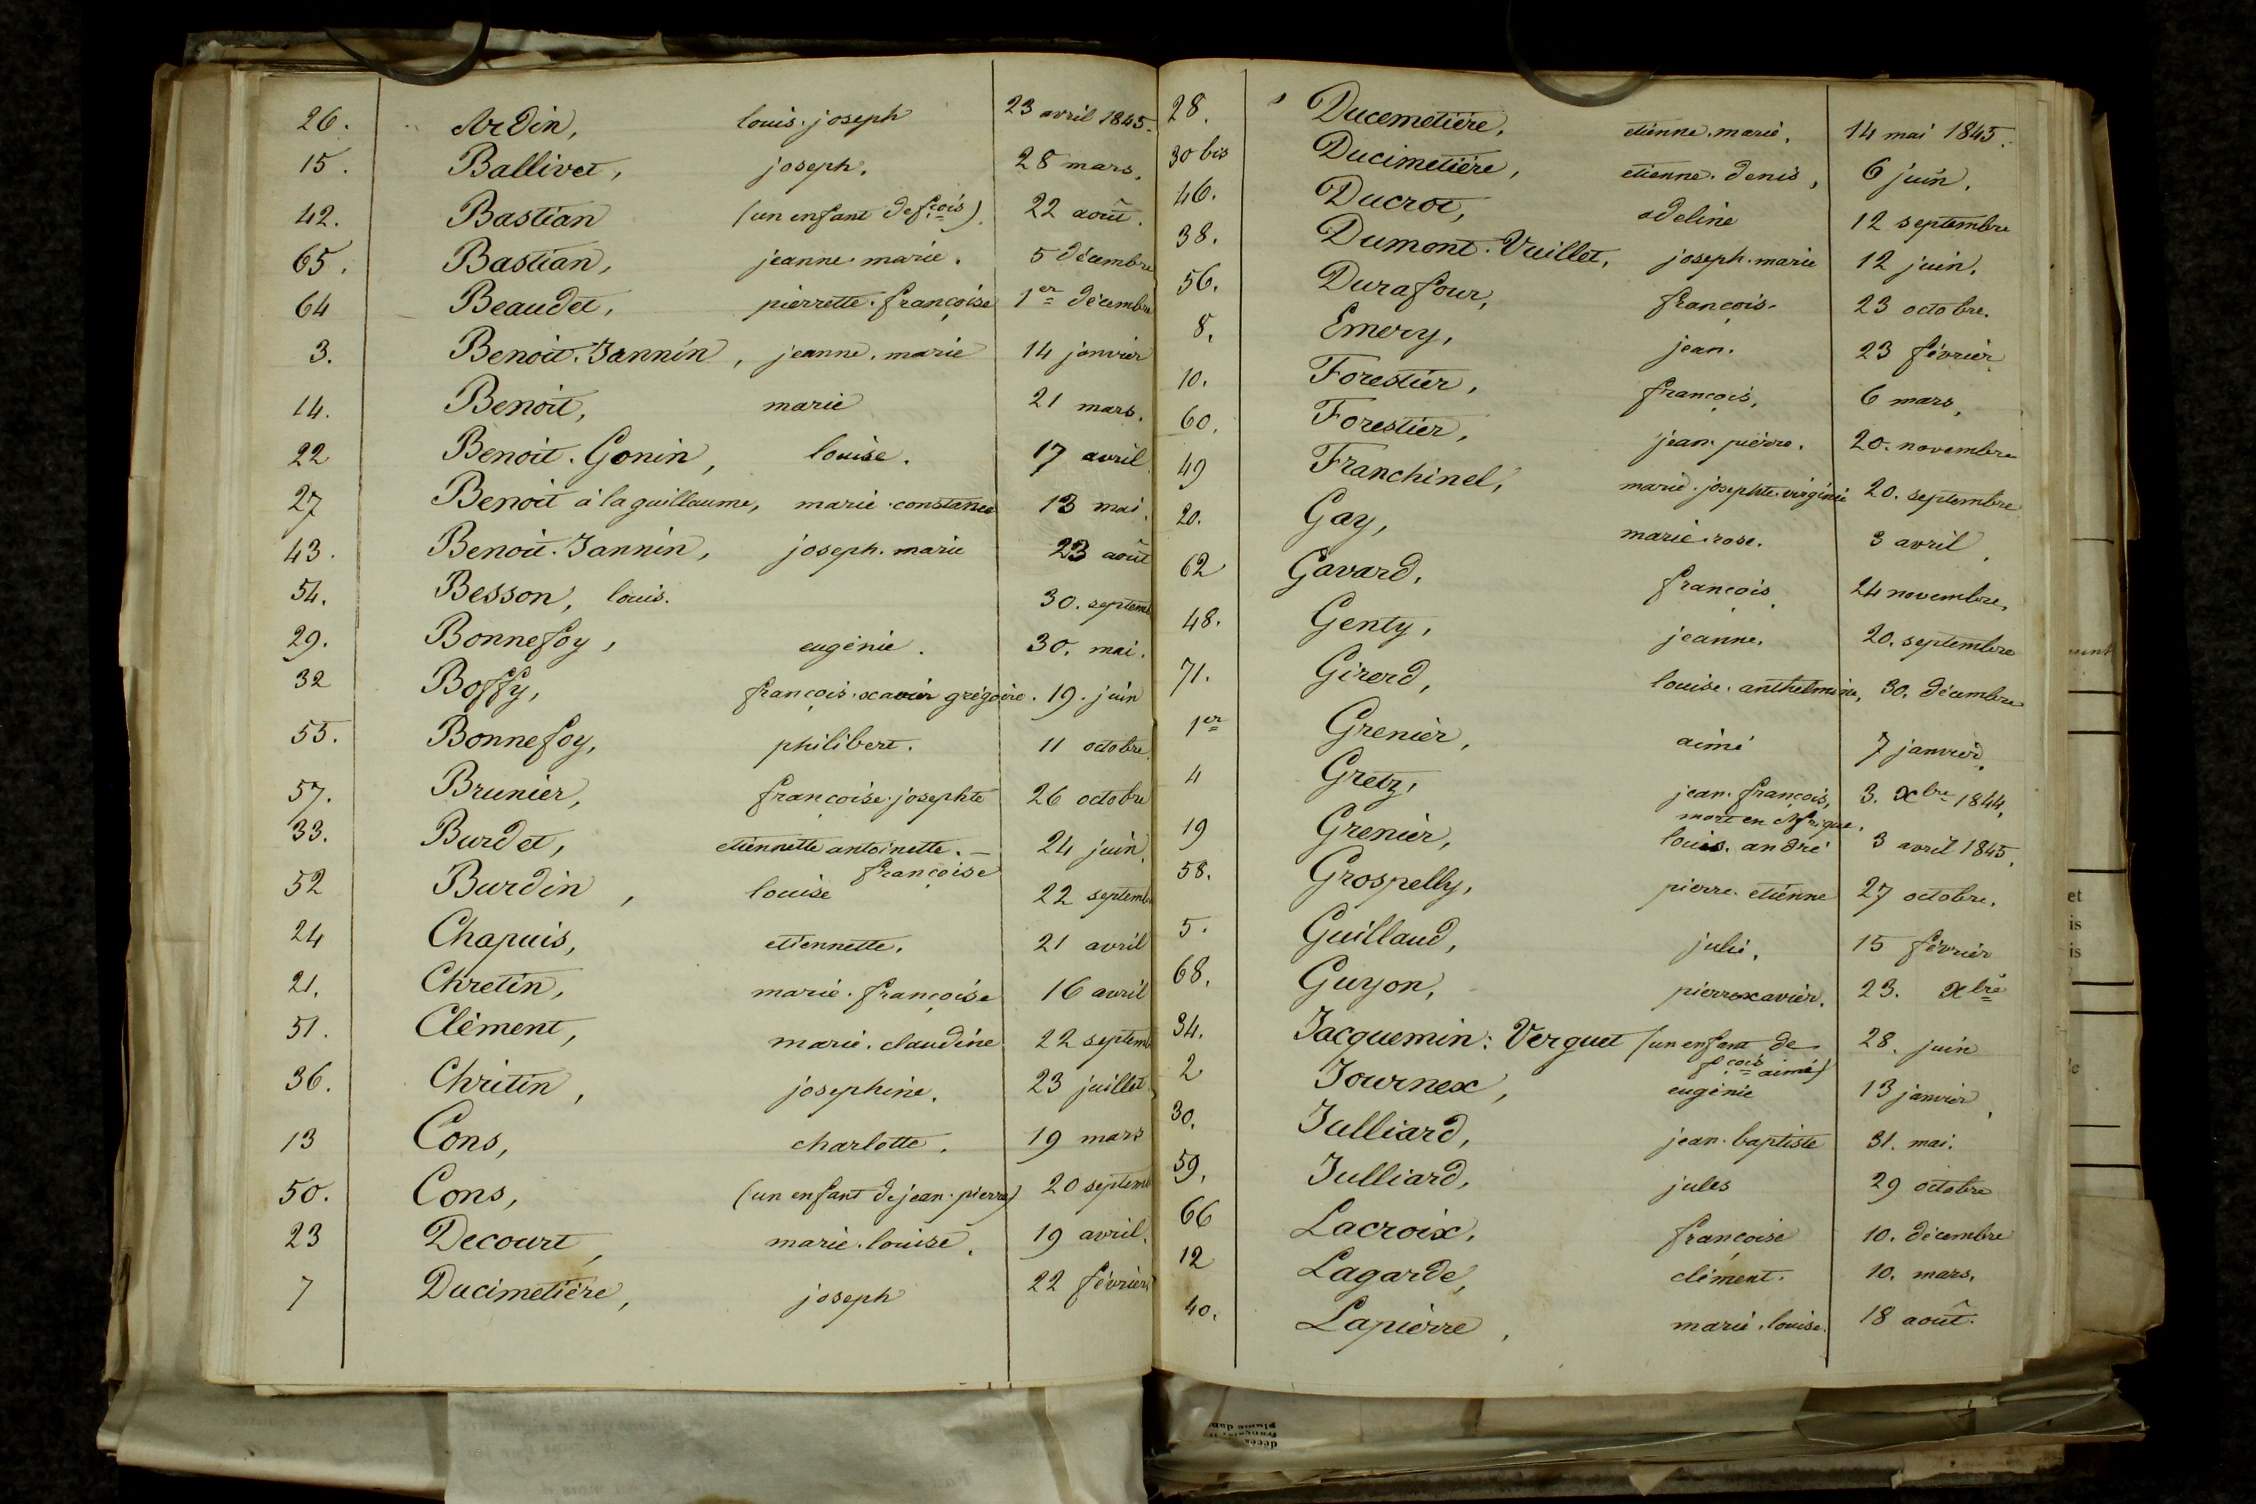 26. Ardin, louis. joseph 23 avril 1845.
15. Ballivet, joseph. 28 mars.
42. Bastian (un enfant de fçois). 22 août.
65. Bastian, jeanne. marie. 5 décembre
64 Beaudet, pierrette. françoise 1er décembre
3. Benoit. Jannin, jeanne. marie 14 janvier
14. Benoit, marie 21 mars.
22 Benoit. Gonin, louise. 17 avril
27 Benoit à la guillaume, marie. constance 13 mai.
43. Benoit. Jannin, joseph. marie 23 août
54. Besson, louis. 30. septemb
29. Bonnefoy, eugénie. 30. mai.
32 Boffy, françois. xavier grégoire. 19. juin
55. Bonnefoy, philibert. 11 octobre
57. Brunier, françoise. josephte 26 octobre
33. Burdet, etiennette antoinette. — 24 juin.
françoise
52 Burdin, louise 22 septemb
24 Chapuis, etiennette. 21 avril
21. Chretin, marie. françoise 16 avril
51. Clément, marie. claudine 22 septemb
36. Chritin, josephine. 23 juillet
13 Cons, charlotte. 19 mars
50. Cons, (un enfant de jean. pierre) 20 septemb
23 Decourt, marie. louise. 19 avril.
7 Ducimetière, joseph 22 février
28. Ducemetière, etienne. marie. 14 mai 1845.
30 bis Ducimetière, etienne. denis, 6 juin.
46. Ducrot, adeline 12 septembre
38. Dumont. Vuillet, joseph. marie 12 juin.
56. Durafour, françois. 23 octobre.
8. Emery, jean. 23 février
10. Forestier, françois, 6 mars,
60. Forestier, jean. pierre. 20. novembre
49 Franchinel, marie. josephte. virginie 20. septembre
20. Gay, marie. rose. 3 avril.
62 Gavard, françois. 24 novembre.
48. Genty, jeanne. 20. septembre
71. Girerd, louise. anthelmine, 30. décembre
1er Grenier, aimé 7 janvier.
4 Gretz, jean. françois, 3. xbre 1844,
mort en Afrique.
19 Grenier, louis. andré 3 avril 1845.
58. Grospelly, pierre. etienne 27 octobre.
5. Guillaud, julie. 15 février
68. Guyon, pierre xavier. 23. xbre
34. Jacquemin: Verguet (un enfant de 28. juin
fçois aimé)
2 Journex, eugénie 13 janvier,
30. Julliard, jean. baptiste 31. mai.
59. Julliard, jules 29 octobre
66 Lacroix, françoise 10. décembre
12 Lagarde, clément. 10. mars.
40. Lapierre, marie. louise. 18 août.
et
is
is